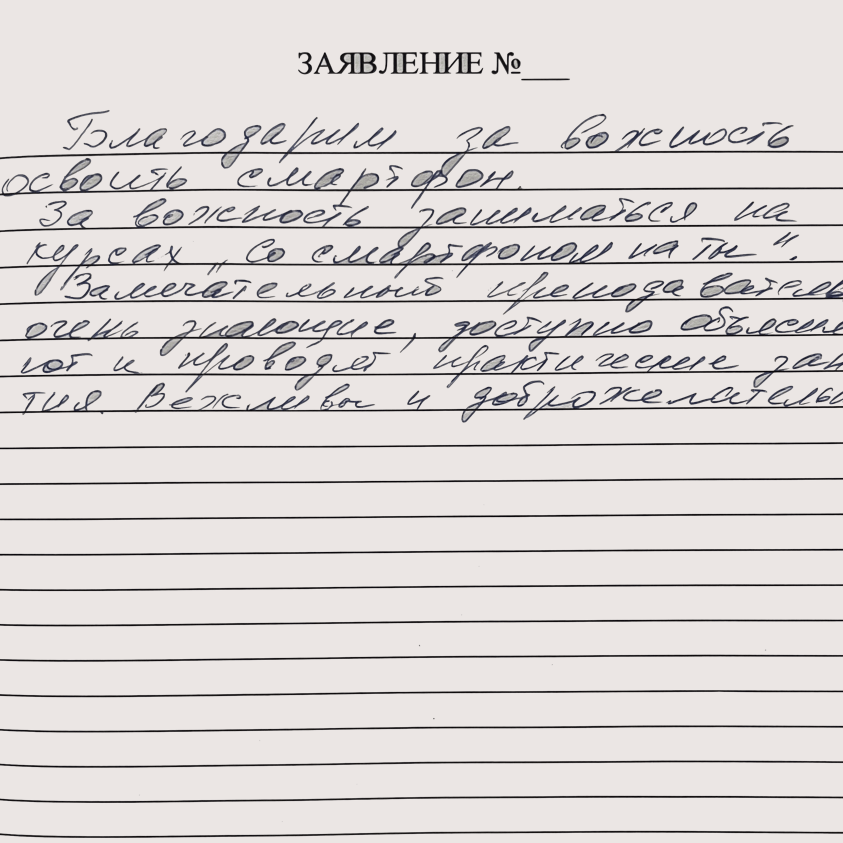 ЗАЯВЛЕНИЕ №___
Благодарим за вожность
освоить смартфон.
За вожность заниматься на
курсах „Со смартфоном на ты".
Замечательный преподаватель
очень знающие, доступно объясня
ют и проводят практические зан
тия. Вежливы и доброжелательн